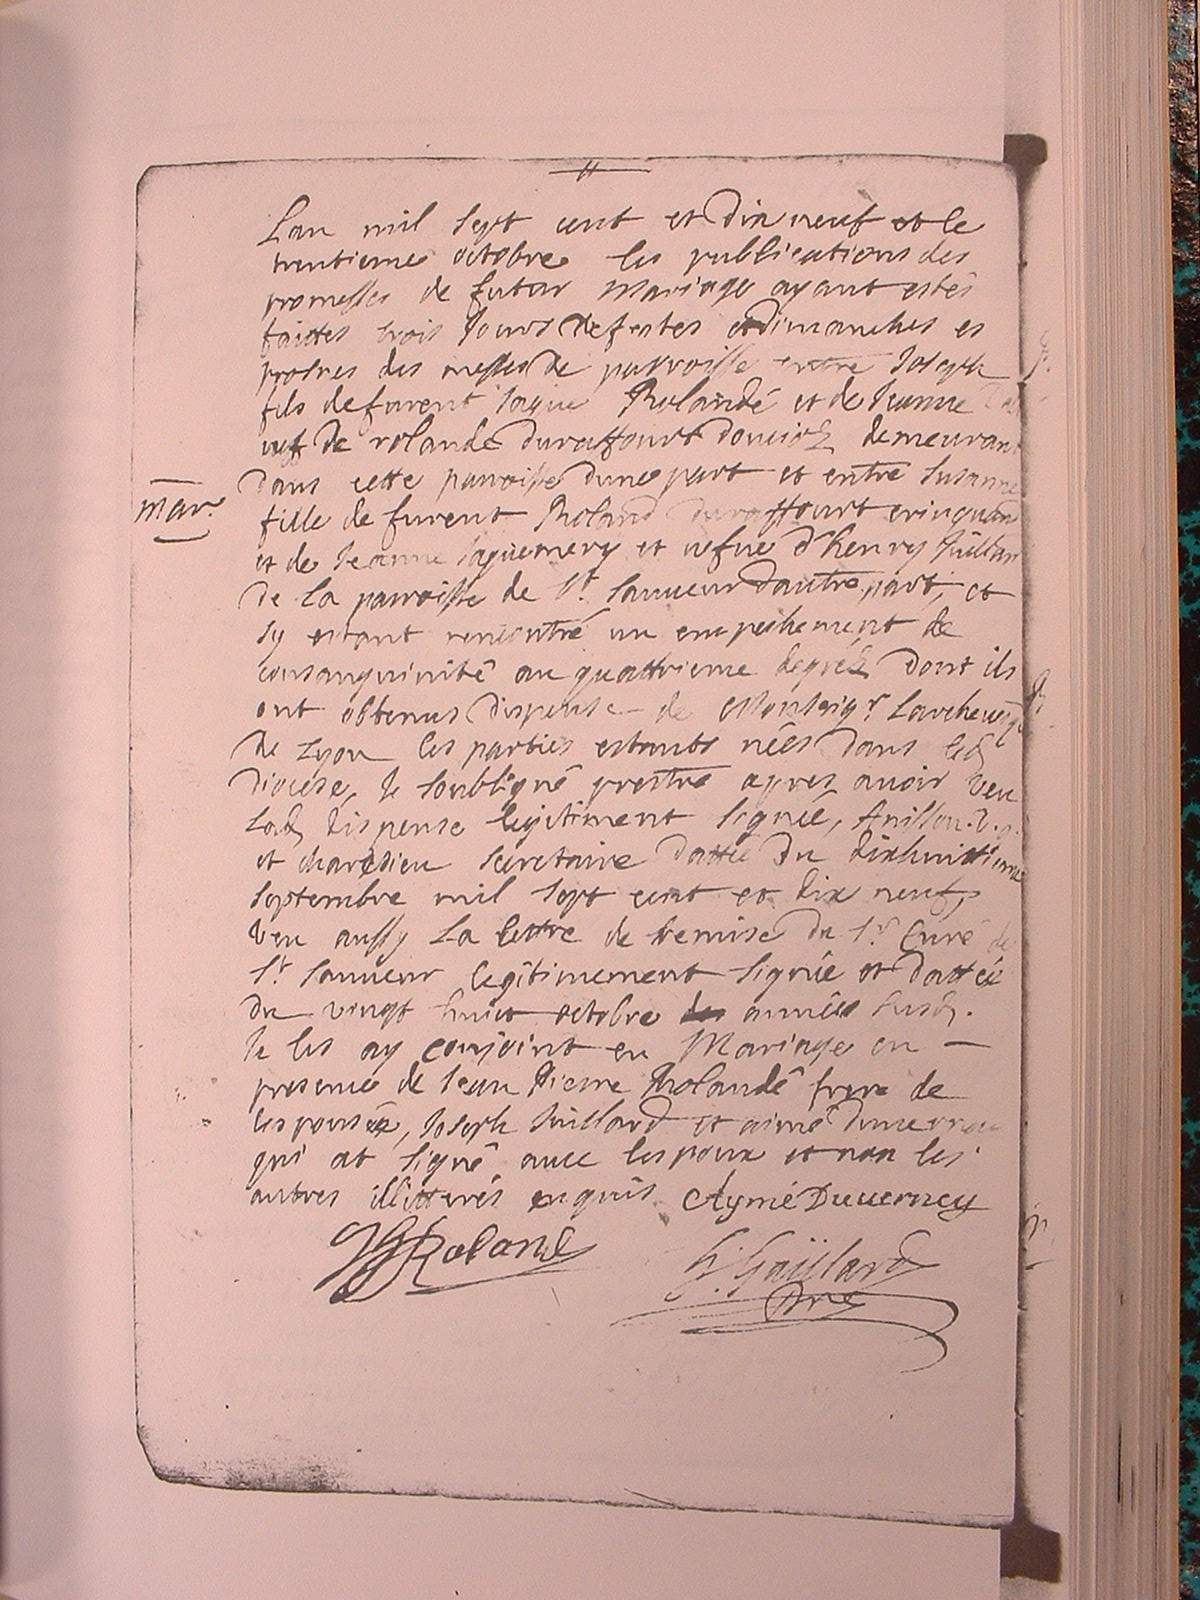 Lan mil sept cent et dix neuf et le
trentieme octobre les publications des
promesses de futur Mariage ayant estés
faittes trois Jours de festes et dimanches es
prosnes des messes de parroisse entre Joseph
fils de furent Jaque Rolandé et de Jeanne
veuf de rolande duraffourt doucioz demeurant
Mar.
dans cette parroisse dune part et entre Susanne
fille de furent Roland duraffourt
et de Jeanne Jaquemery et vefue d'henry Juillard
de la parroisse de St. Sauueur dautre part, et
sy estant rencontré un empeschement de
consanguinité au quattrieme degréz dont ils
ont obtenus dispense de Monseigr. Larcheuesq
de Lyon les parties estants nées dans led.
diocese, Je soubsigné prestre apres auoir veu
lad. dispense legitiment signée,
et secretaire dattée du dixhuittieme
septembre mil sept cent et dix neuf,
veu aussy la lettre de remise du Sr. Curé de
St. Sauueur legitimement signée et dattée
du vingt huict octobre année susd.
Je les ay conjoint en Mariage en
presence de Jean Pierre Rolandé frere de
lespousé, Joseph Juillard et aimé duuerney
qui at signé auec lespoux et non les
autres illitterés enquis Aymé Duuerney
JJ Roland
G. Gaillard